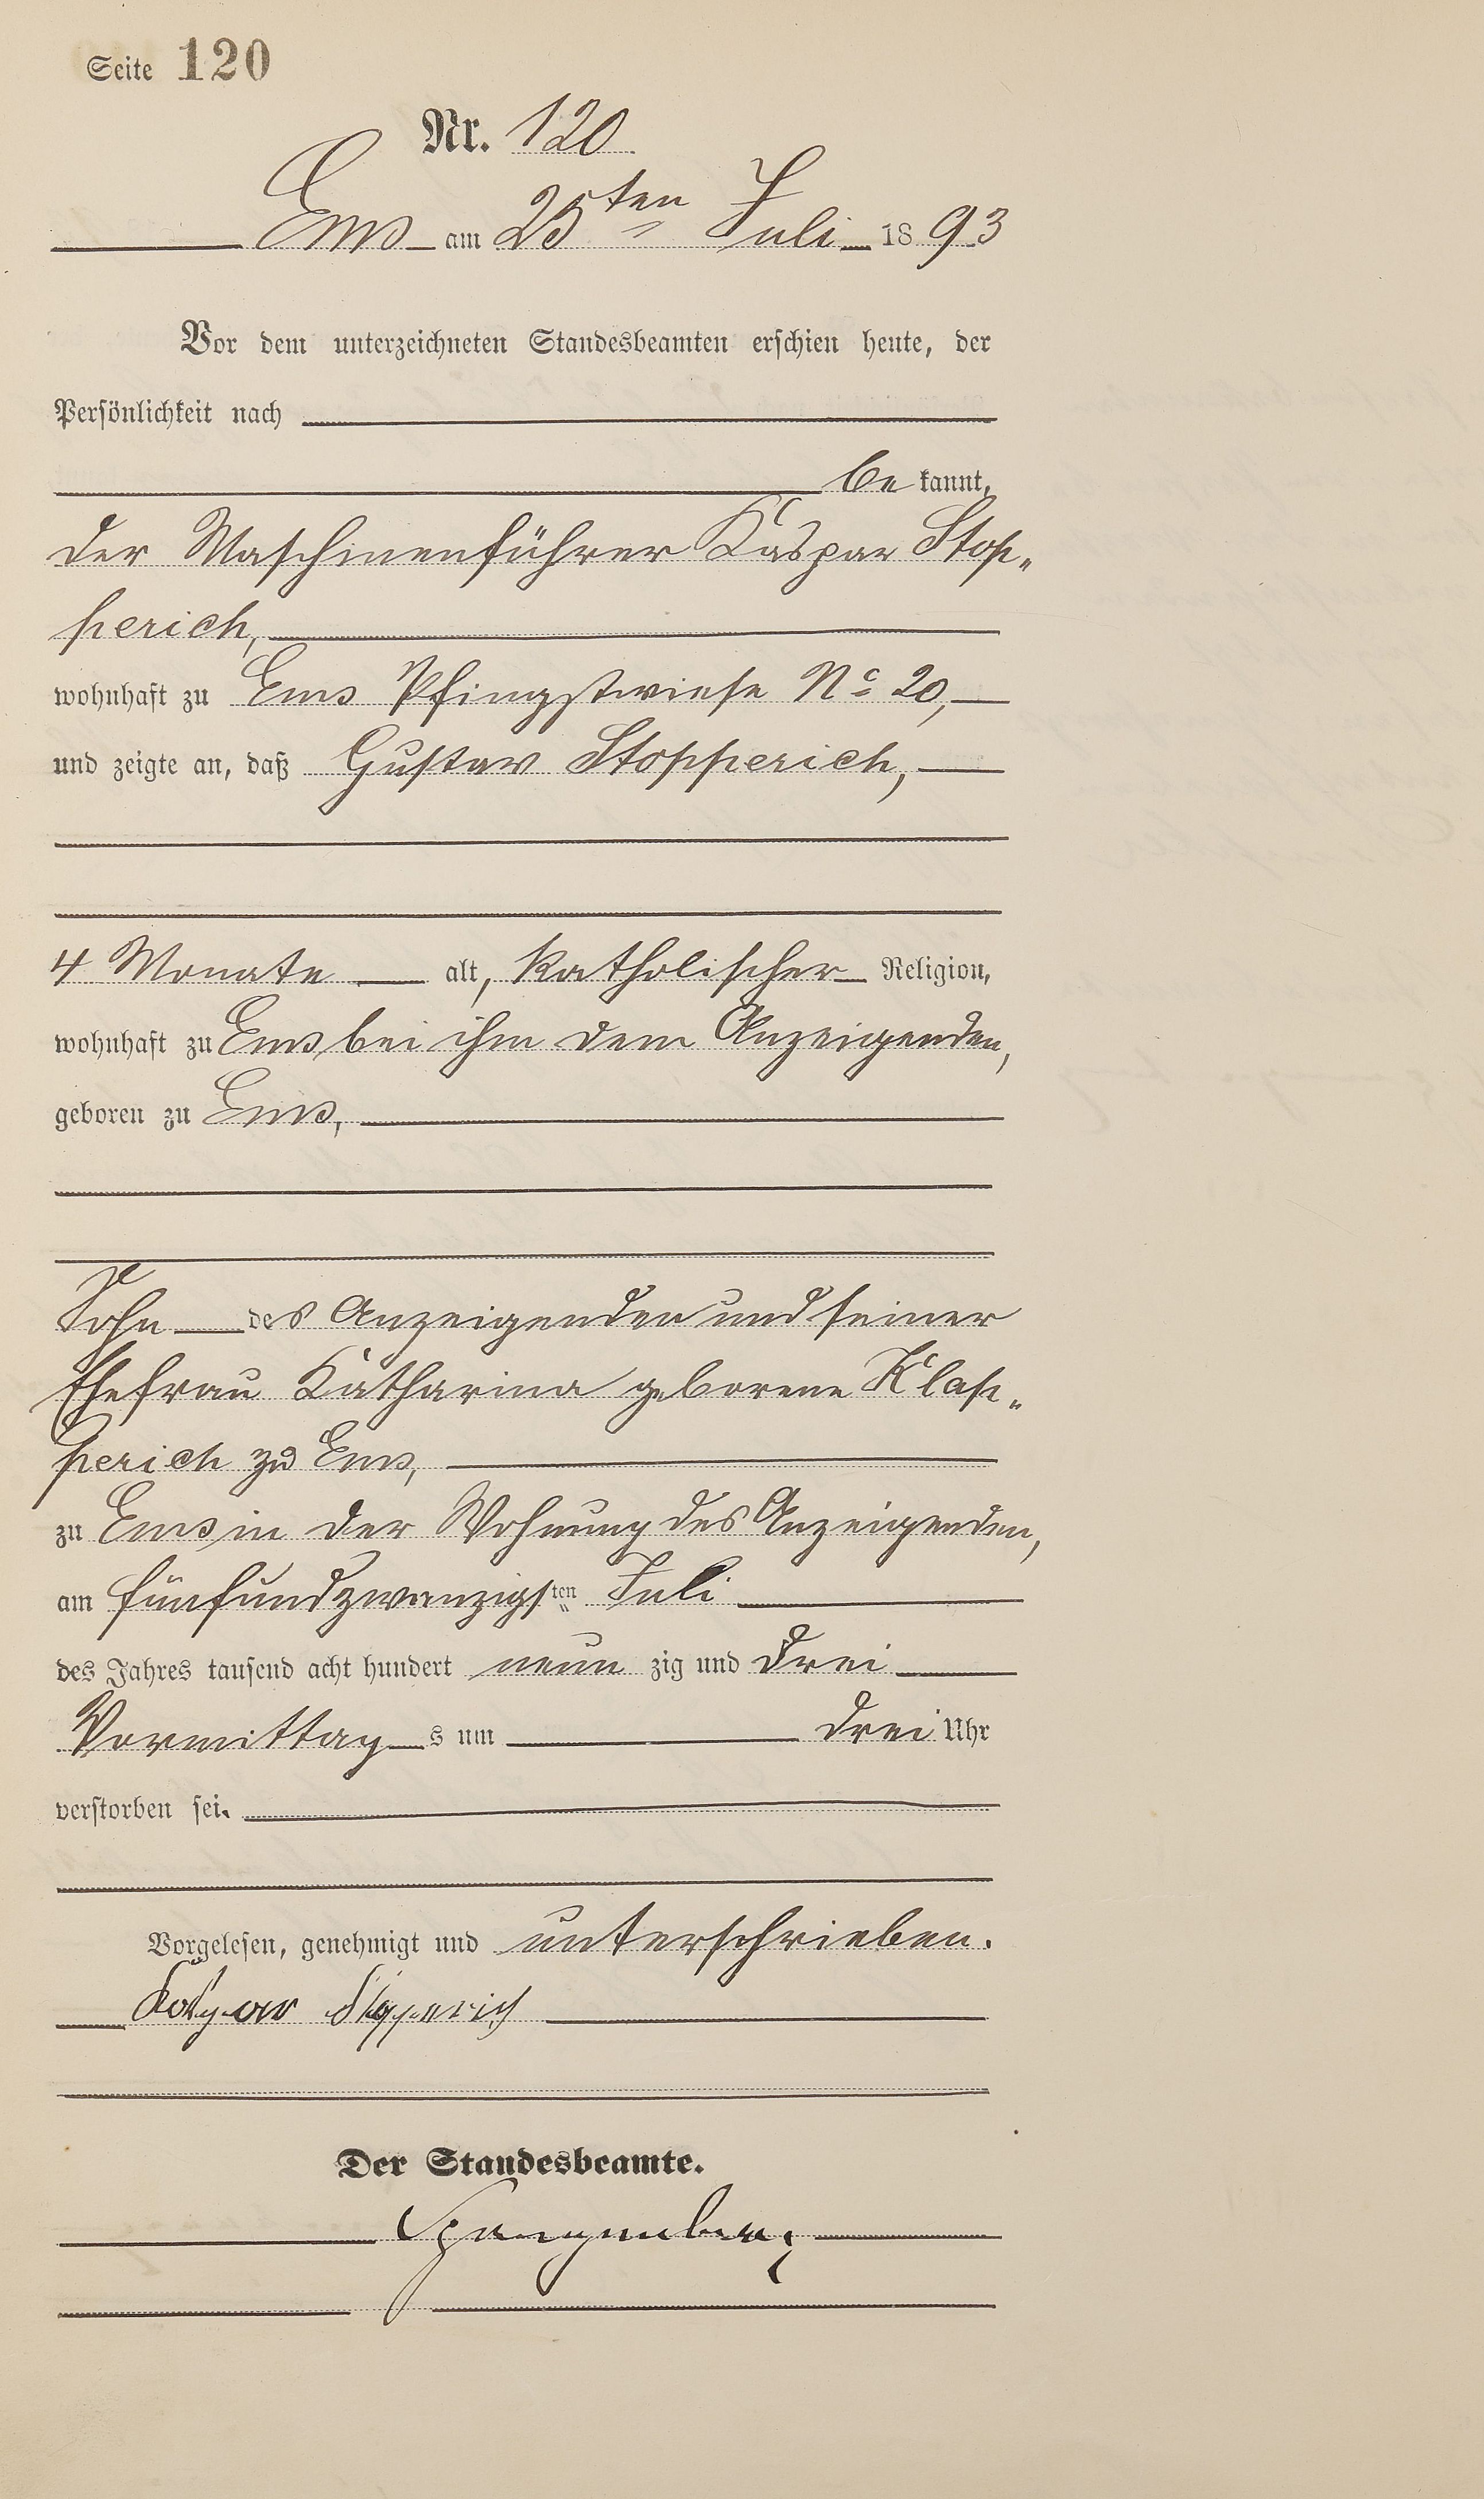 Seite 120
Nr. 120
Ems am 25ten Juli 1893
Vor dem unterzeichneten Standesbeamten erschien heute, der
Persönlichkeit nach
be kannt,
der Maschinenführer Kaspar Stop„
perich,
wohnhaft zu Ems Pfingstwiese No 20,
und zeigte an, daß Gustav Stopperich,
4 Monate alt, katholischer Religion,
wohnhaft zu Ems bei ihm dem Anzeigenden,
geboren zu Ems,
Sohn des Anzeigenden und seiner
Ehefrau Katharina geborene Klap„
perich zu Ems,
zu Ems in der Wohnung des Anzeigenden,
am fünfundzwanzigsten Juli
des Jahres tausend acht hundert neun zig und drei
Vormittags um drei Uhr
verstorben sei.
Vorgelesen, genehmigt und unterschrieben.
Kaspar Stopperich
Der Standesbeamte.
Spangenberg